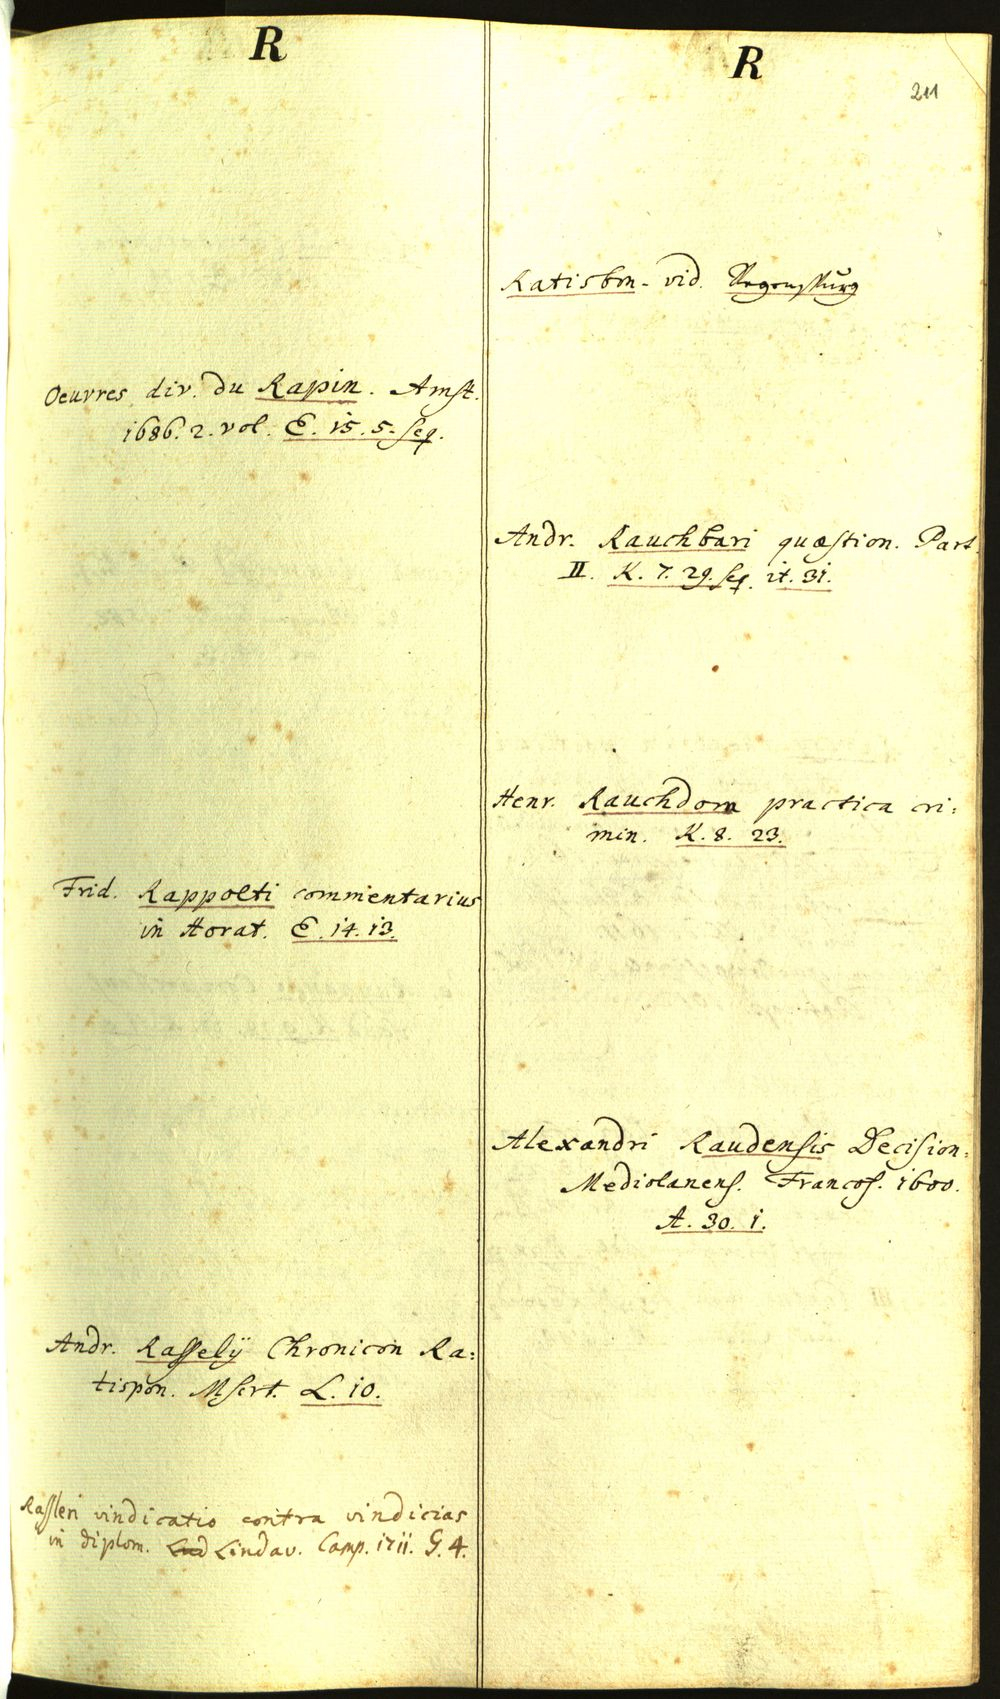 R
Oeuvres div. du Rapin. Amst.
1686. 2. vol. E. 15. 5. seq.
Frid. Rappolti commentarius
in Horat. E. 14. 13.
Andr. Rasselÿ Chronicon Ra:
tispon. Mscrt. L. 10.
Rassleri vindicatio contra vindicias
in diplom. Lindav. Camp. 1711. G. 4.
R
211
Ratisbon. vid. Regenspurg
Andr. Rauchbari quæstion. Part.
II. K. 7. 29. seq. it. 31.
Henr. Rauchdorn practica cri:
min. K. 8. 23.
Alexandri Raudensis Decision:
Mediolanens. Francof. 1600.
A. 30. 1.